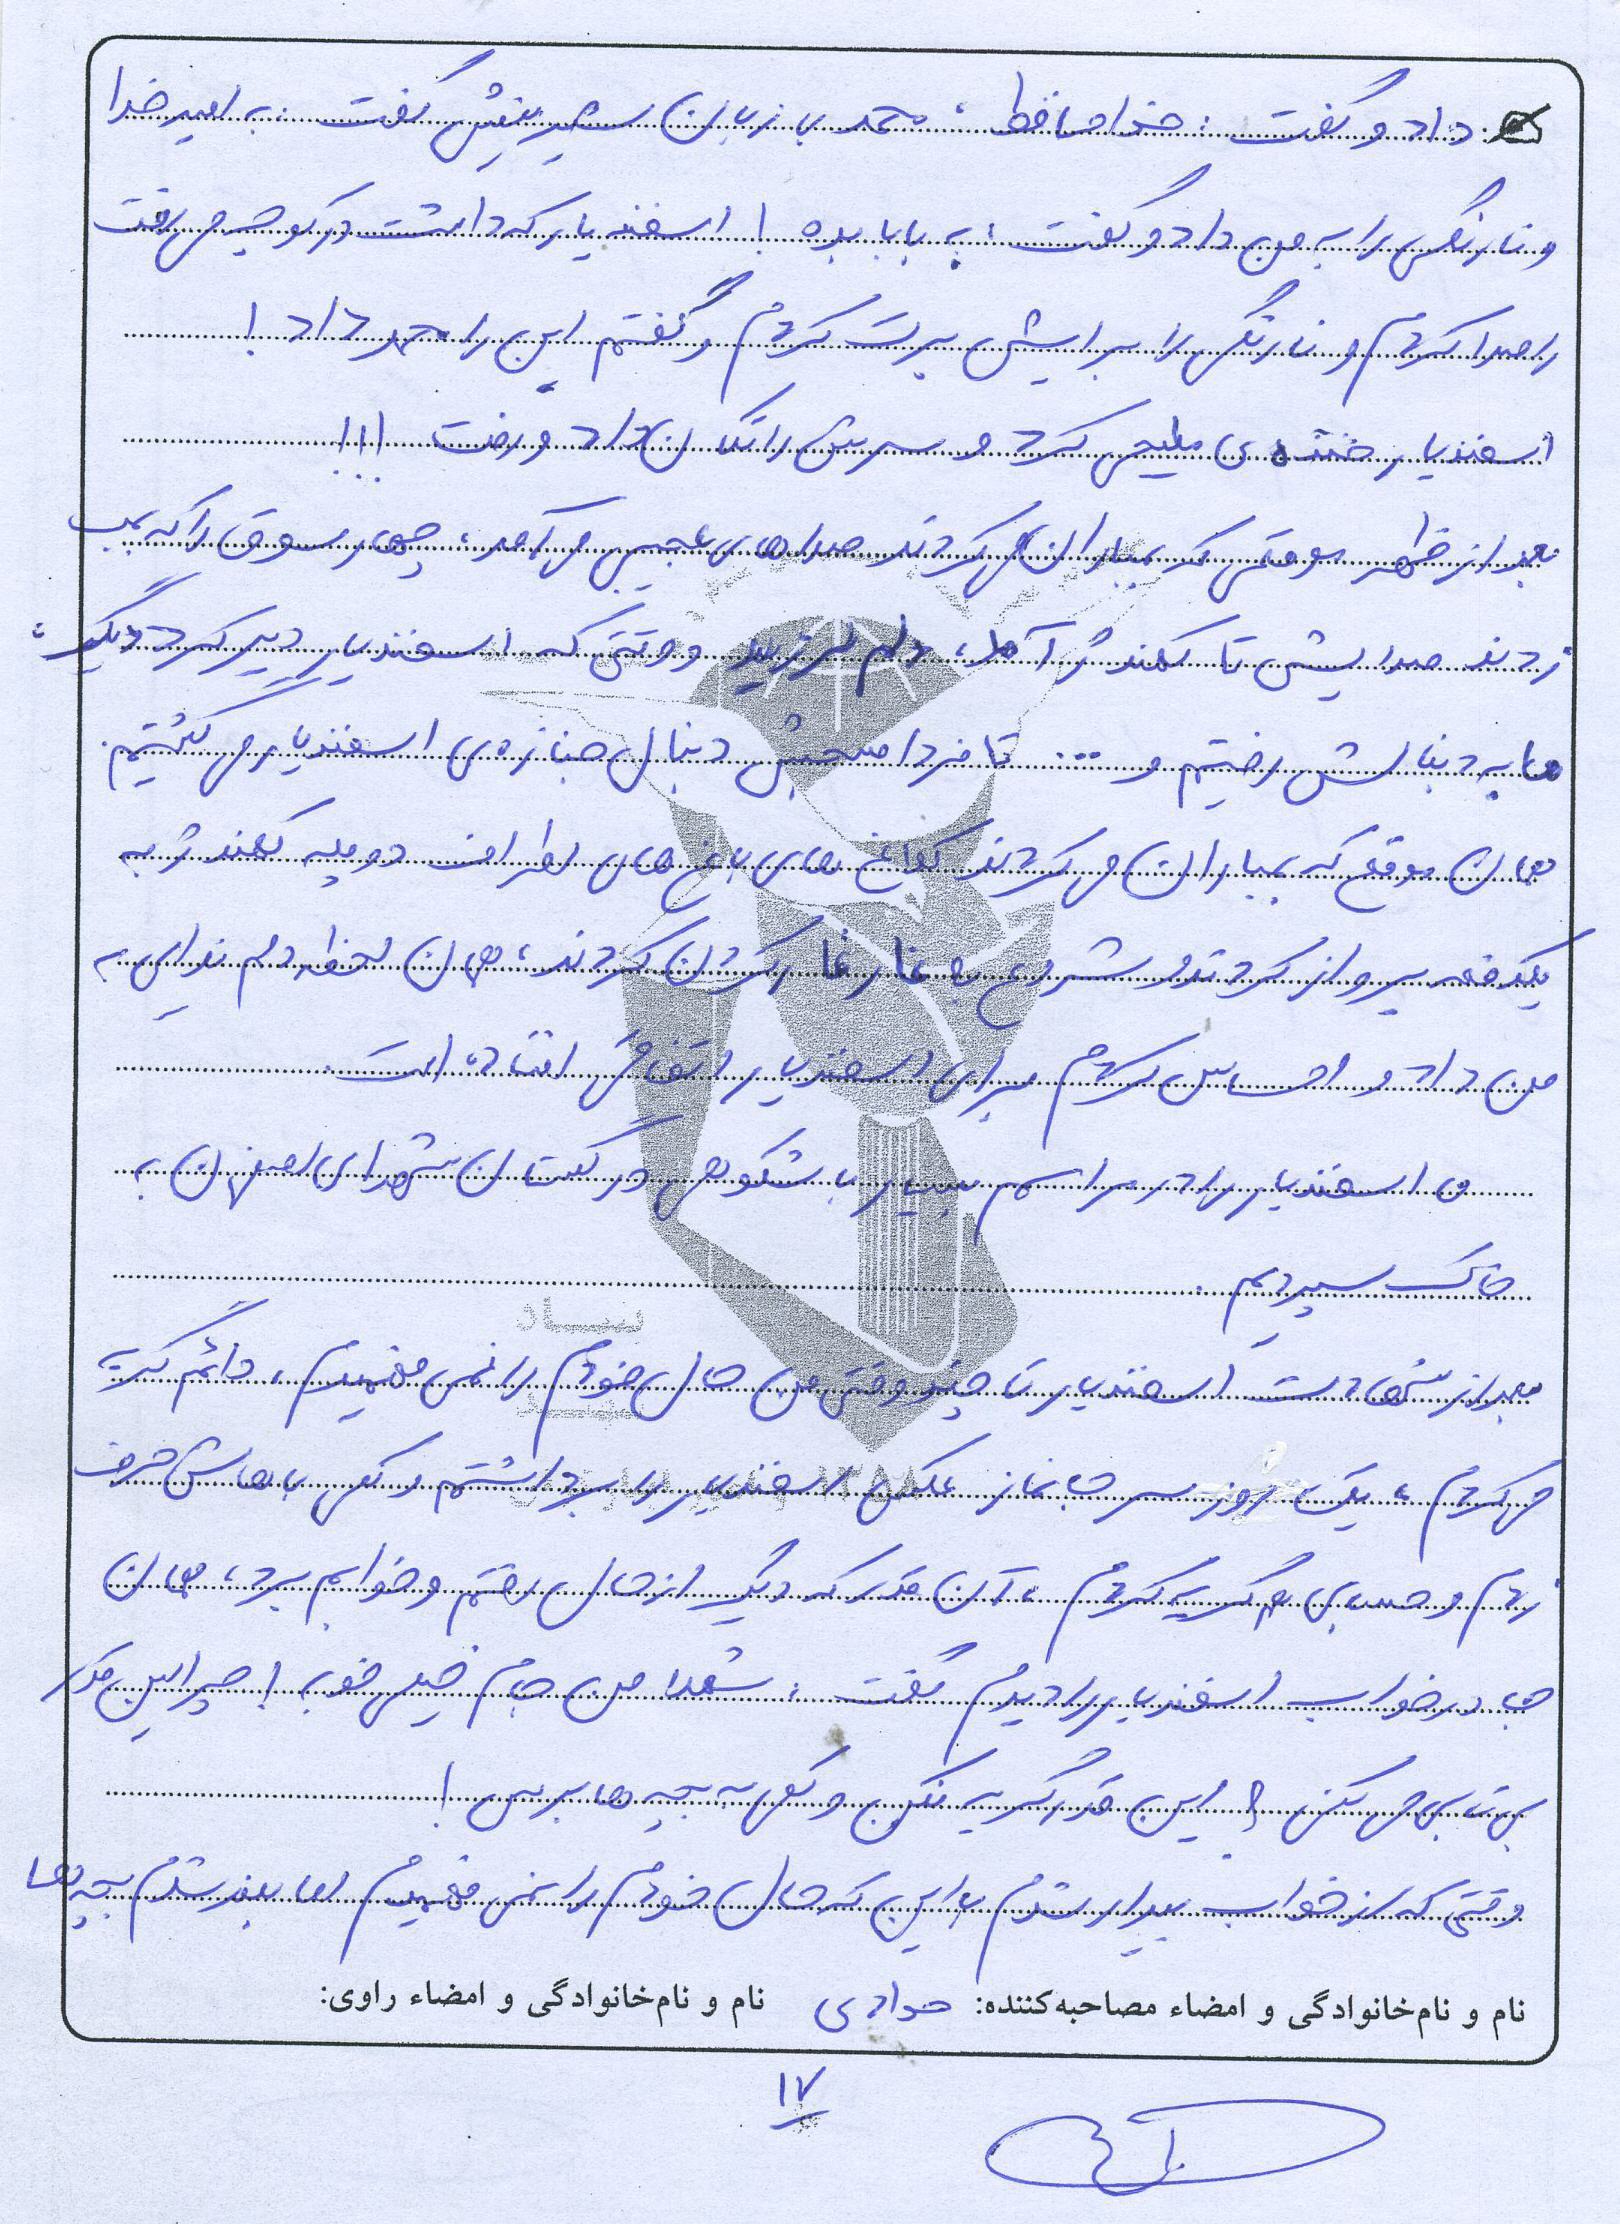 داد و گفت: خداحافظ، محمد با زبان شیرینش گفت: به امید خدا
و نارنگی را به من داد و گفت: به بابا بده! اسفندیار که داشت در کوچه می رفت
را صدا کردم و نارنگی را برایش پرت کردم و گفتم این را محمد داد!
اسفندیار خنده ی ملیحی کرد و سرش را تکان داد و رفت !!!
بعد از ظهر موقعی که بمباران می کردند صداهای عجیبی می آمد، چهارسوق را که بمب
زدند صدایش تا کهندژ آمد، دلم لرزید و وقتی که اسفندیار دیر کرد دیگر،
ما به دنبالش رفتیم و .... تا فردا صبحش دنبال جنازه ی اسفندیار می گشتیم.
همان موقع که بمباران می کردند کلاغ های باغ های اطراف دو پله کهندژ به
یکدفعه پرواز کردند و شروع به غارغار کردن کردند، همان لحظه دلم ندایی به
من داد و احساس کردم برای اسفندیار اتفاقی افتاده است.
و اسفندیار را در مراسم بسیار با شکوهی در گلستان شهدای اصفهان به
خاک سپردیم.
بنیاد
بعد از شهادت اسفندیار تا چند وقتی من حال خودم را نمی فهمیدم، دائم گریه
می کردم، یک روز سر جانماز عکس اسفندیار را برداشتم و کلی باهاش حرف
زدم و حسابی هم گریه کردم، آن قدر که دیگر از حال رفتم و خوابم برد، همان
جا در خواب اسفندیار را دیدم گفت: شهلا من جام خیلی خوب! چرا این قدر
بی تابی می کنی؟ این قدر گریه نکن و کلی به بچه ها برس!
وقتی که از خواب بیدار شدم با این که حال خودم را نمی فهمیدم اما بلند شدم بچه ها
نام و نام‌خانوادگی و امضاء مصاحبه‌کننده: جوادی نام و نام‌خانوادگی و امضاء راوی:
۱۷